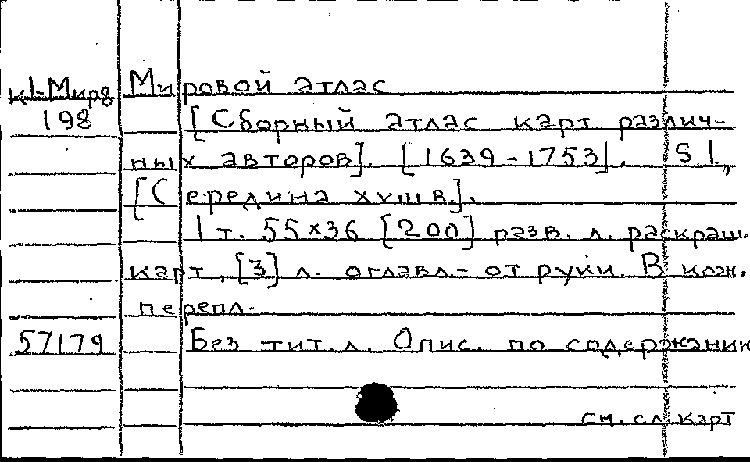 к1-Мира Мировой атлас
198 [Сборный атлас карт различ-
ных авторов]. [1639-1753]. S l.,
[Середина XVIII в].
1 т. 55x36 [200] разв. л. раскраш.
карт, [3] л. оглавл.- от руки. В кож.
перепл.
57179 Без тит. л. Опис. по содержани
см. сл. карт